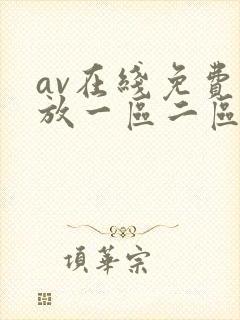 av在綫免費
放一區二區
項華宗